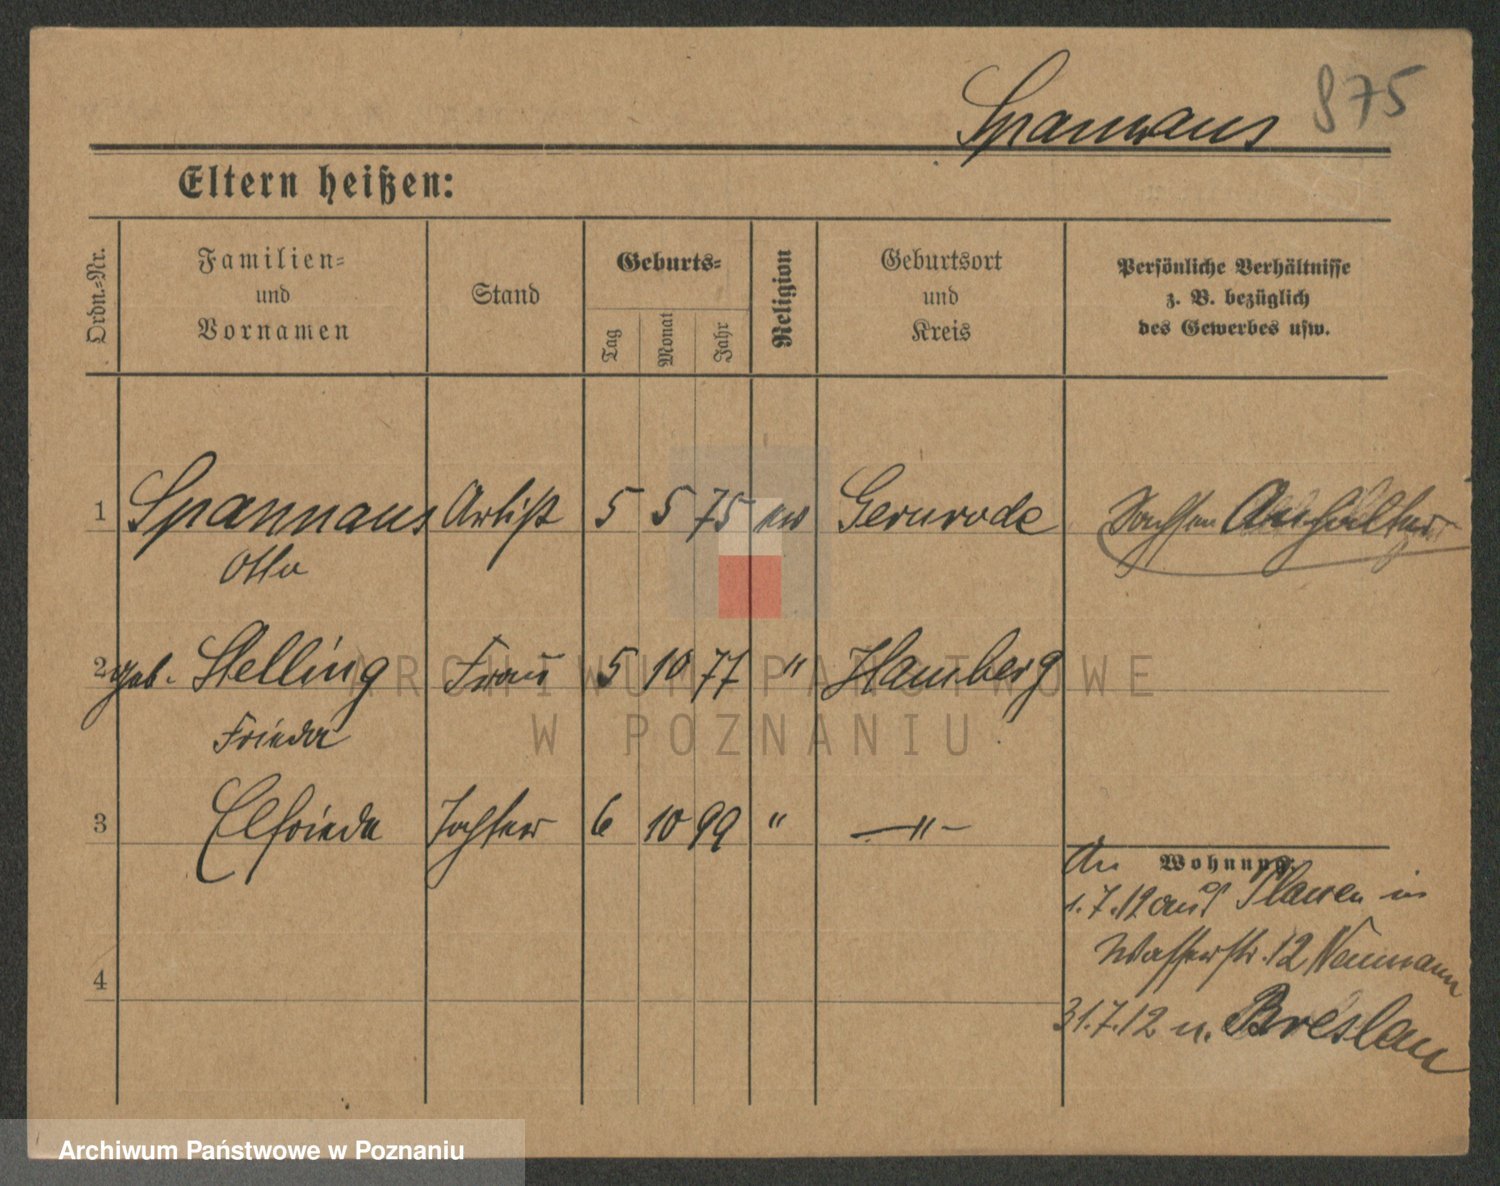 Spannaus 875
Eltern heißen:
Ordn.-Nr.
Familien-
und
Vornamen
Stand
Geburts-
Tag
Monat
Jahr
Religion
Geburtsort
und
Kreis
Persönliche Verhältnisse
z. B. bezüglich
des Gewerbes usw.
1 Spannaus Artist 5 5 75 ev Gernrode Sachsen Anhalt
Otto
2 geb. Stelling Frau 5 10 77 " Hamberg
Frieda
3 Elfriede Tochter 6 10 99 " —"—
An Wohnung:
1.7.12 aus Plauen in
Wasserstr. 12 Neumann
4
31.7.12 n. Breslau
ARCHIWUM PAŃSTWOWE
W POZNANIU
Archiwum Państwowe w Poznaniu